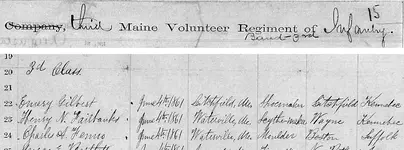 15
Company, third Maine Volunteer Regiment of Infantry.
Band
19
20 3d Class
21
22 Emery Gilbert " June 4th, 1861 Litchfield, Me Shoemaker Litchfield Kennebec
23 Henry N. Fairbanks " June 4th, 1861 Waterville, Me Scythemaker Wayne Kennebec
24 Charles A. " June 4th, 1861 Waterville, Me Moulder Boston Suffolk